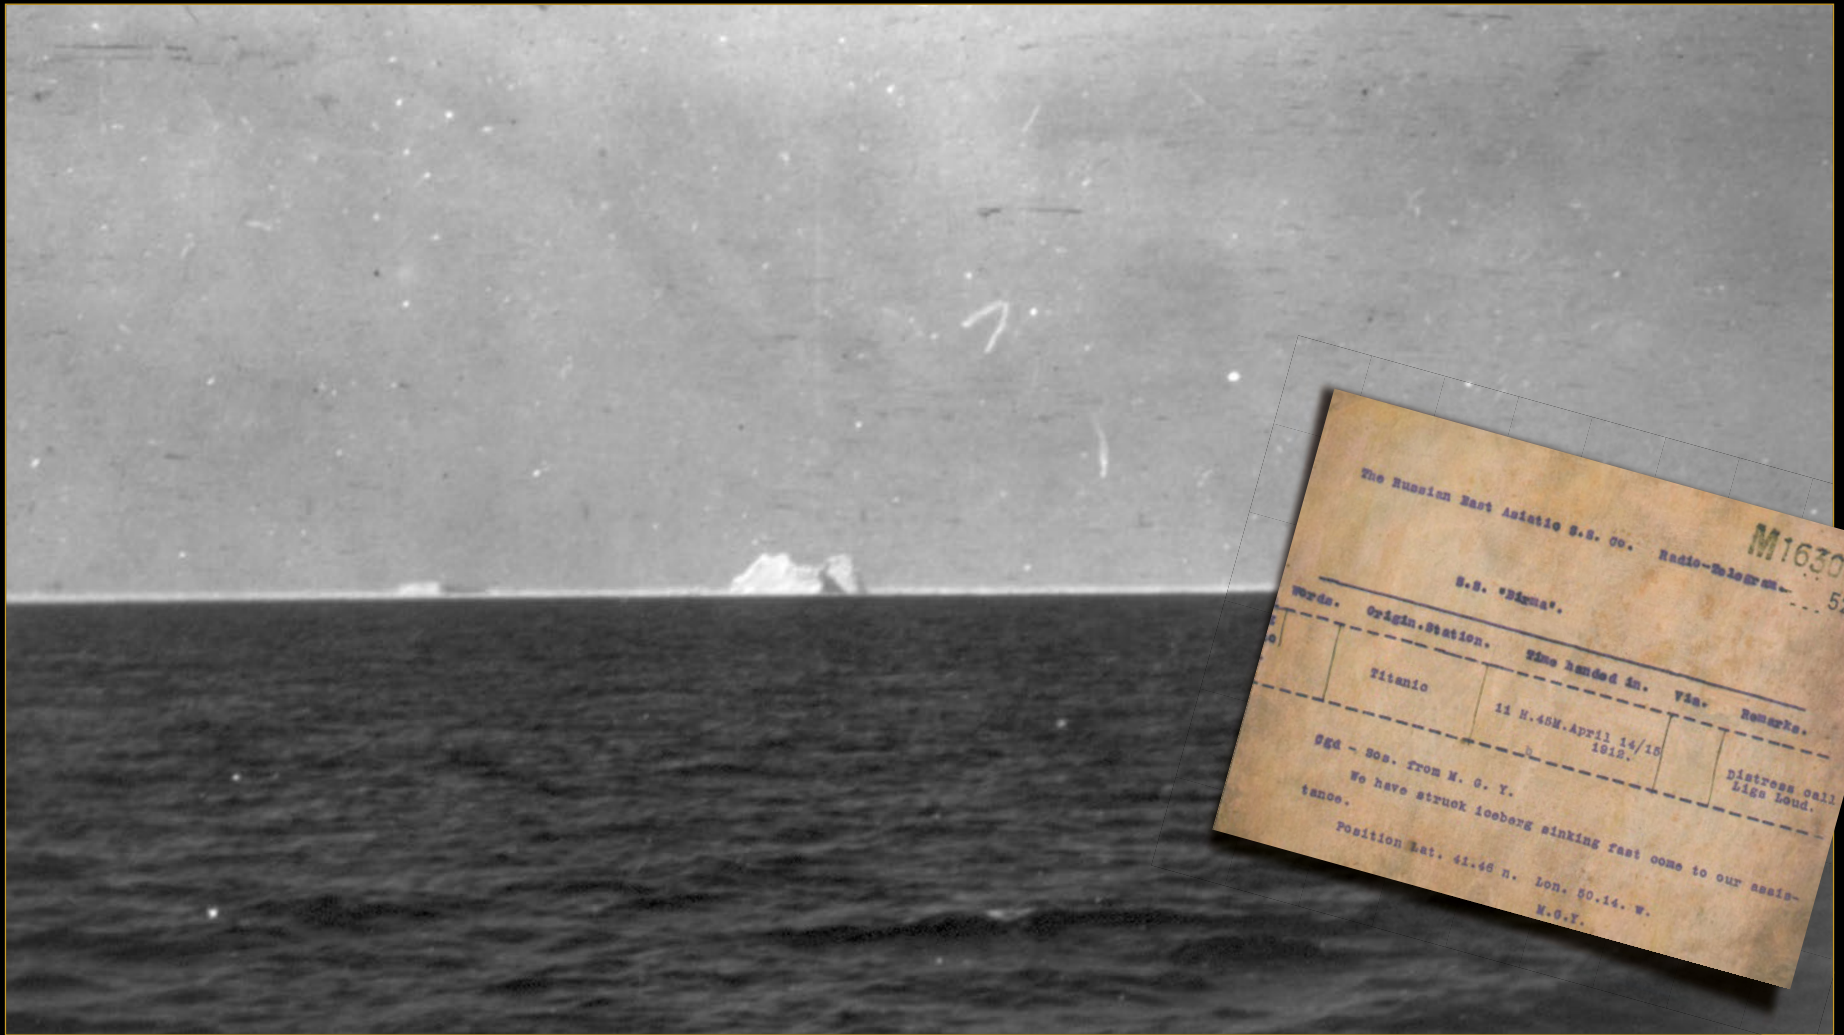 The Russian East Asiatic S.S. Co. Radio-Telegram.
M1630
S.S. "Birma".
Words. Origin.Station. Time handed in. Via. Remarks.
Titanic
11 H.45M.April 14/15
1912.
Distress call
Ligs Loud.
Cgd - Sos. from M. G. Y.
We have struck iceberg sinking fast come to our assis-
tance.
Position Lat. 41.46 n. Lon. 50.14. w.
M.G.Y.